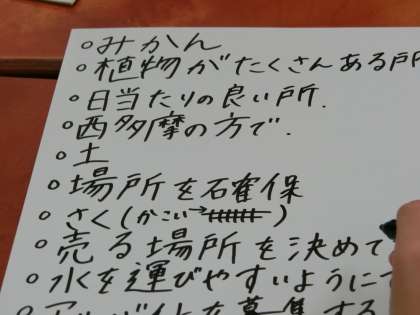 ○みかん
○植物がたくさんある所
○日当たりの良い所.
○西多摩の方で.
○土
○場所を確保
○さく(かこい→)
○売る場所を決めて
○水を運びやすいように
○アルバイトを募集する